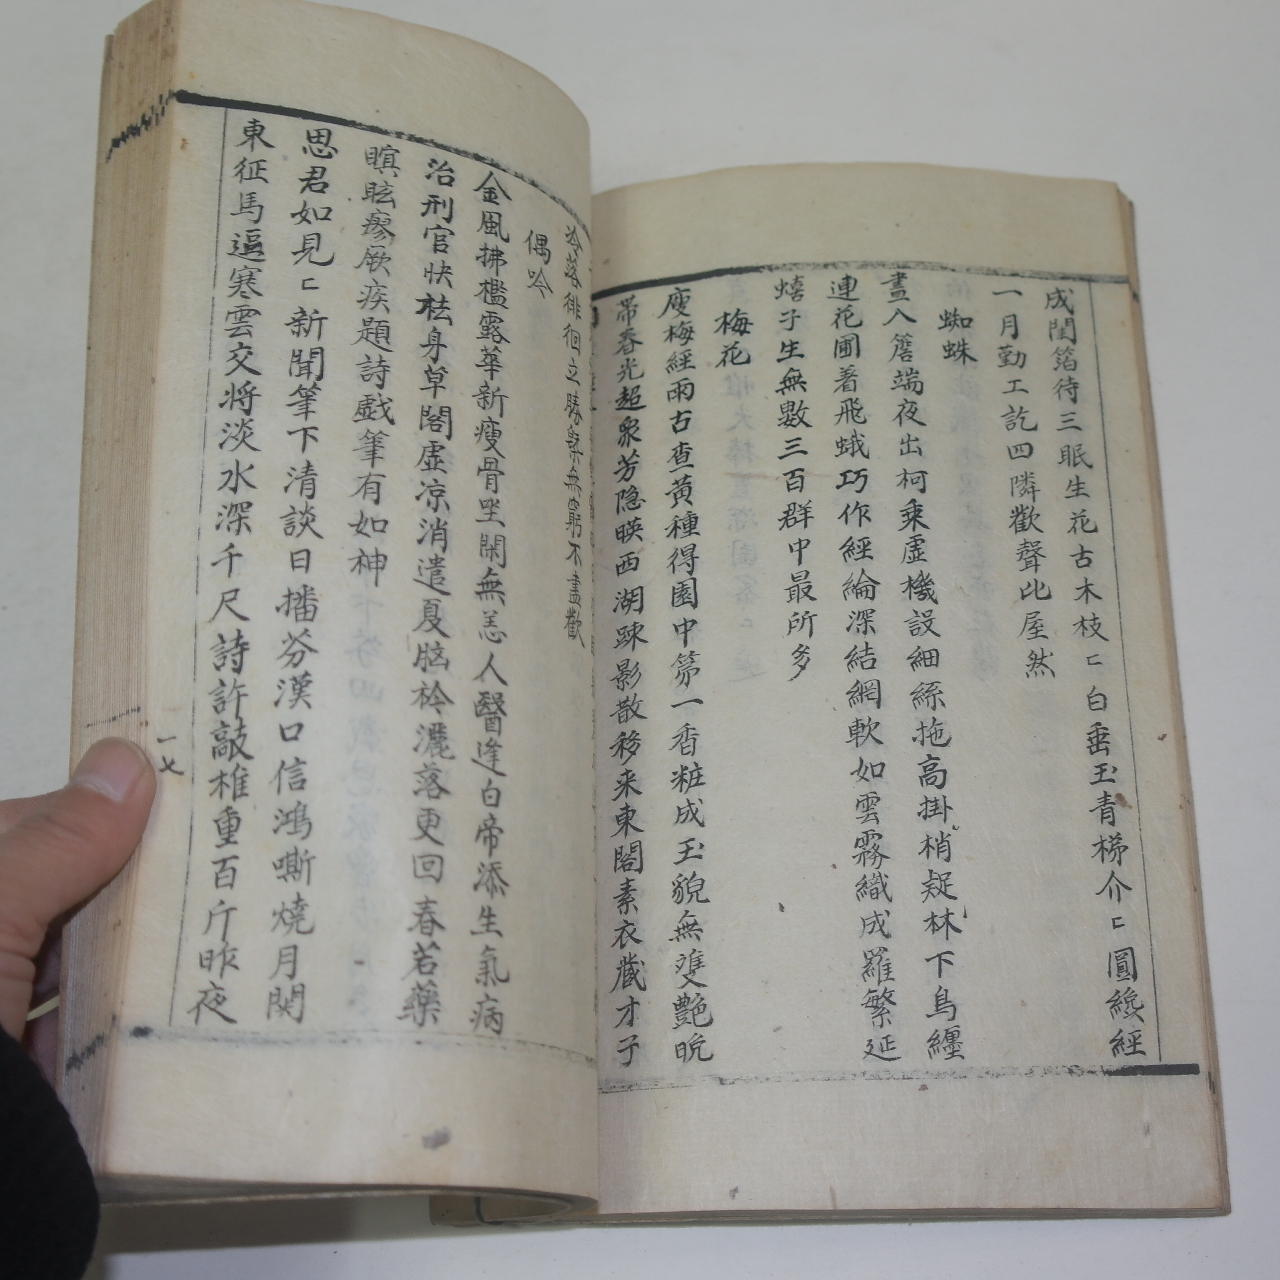 成閨箔待三眠生花古木枝ㄷ白垂玉青梯介ㄷ圓纔經
一月勤工訖四隣歡聲比屋然
蜘蛛
晝入簷端夜出柯乘虛機設細絲拖高掛梢疑林下鳥纏
連花圃着飛蛾巧作經綸深結網軟如雲霧織成羅繁延
蟢子生無數三百群中最所多
梅花
廋梅經雨古查黃種得園中第一香粧成玉貌無雙艶晩
帶春光超衆芳隐暎西湖踈影散移来東閣素衣藏才子
冷落徘徊立勝
無窮不盡歡
偶吟
金風拂檻露華新瘦骨坐閑無恙人醫逢白帝添生氣病
治刑官快袪身草閣虛凉消遣夏脳柃灑落更回春若藥
瞑眩瘳厥疾題詩戱筆有如神
思君如見ㄷ新聞筆下清談日播芬漢口信鴻嘶燒月関
東征馬逼寒雲交将淡水深千尺詩許敲椎重百斤昨夜
一七